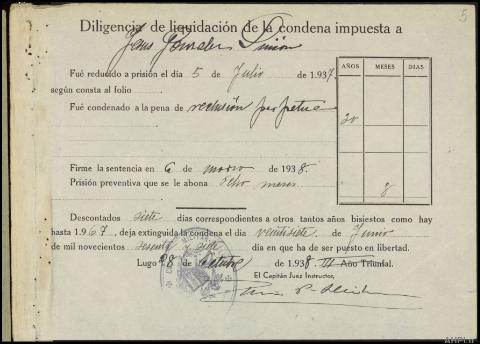 5
Diligencia de liquidación de la condena impuesta a
Jesus Gonzalez
Fué reducido a prisión el día 5 de Julio de 1.937,
según consta al folio
Fué condenado a la pena de reclusión perpetua
AÑOS MESES DIAS
Firme la sentencia en 6 de marzo de 1938.
Prisión preventiva que se le abona ocho meses
8
Descontados siete días correspondientes a otros tantos años bisiestos como hay
hasta 1.967, deja extinguida la condena el día veintisiete de Junio
de mil novecientos sesenta y siete día en que ha de ser puesto en libertad.
Lugo 28 de octubre de 1.938. III Año Triunfal.
El Capitán Juez Instructor,